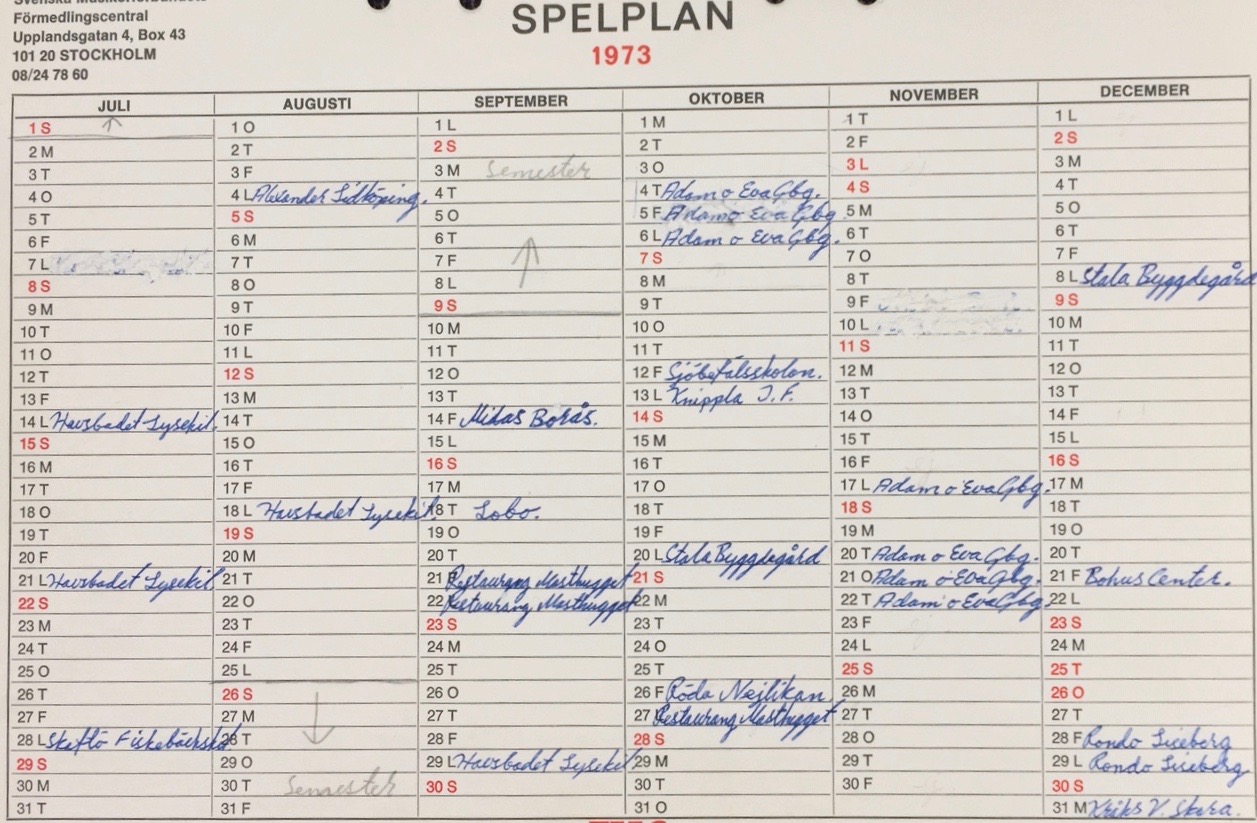 Förmedlingscentral
Upplandsgatan 4, Box 43
101 20 STOCKHOLM
08/24 78 60
SPELPLAN
1973
JULI
1 S
2 M
3 T
4 O
5 T
6 F
7 L
8 S
9 M
10 T
11 O
12 T
13 F
14 L Havsbadet Lysekil.
15 S
16 M
17 T
18 O
19 T
20 F
21 L Havsbadet Lysekil.
22 S
23 M
24 T
25 O
26 T
27 F
28 L Skaftö Fiskebäckskil
29 S
30 M
31 T
AUGUSTI
1 O
2 T
3 F
4 L Alexander Lidköping.
5 S
6 M
7 T
8 O
9 T
10 F
11 L
12 S
13 M
14 T
15 O
16 T
17 F
18 L Havsbadet Lysekil.
19 S
20 M
21 T
22 O
23 T
24 F
25 L
26 S
27 M
28 T
29 O
30 T Semester
31 F
SEPTEMBER
1 L
2 S
3 M Semester
4 T
5 O
6 T
7 F
8 L
9 S
10 M
11 T
12 O
13 T
14 F Midas Borås.
15 L
16 S
17 M
18 T Lobo.
19 O
20 T
21 F Restaurang Masthugget
22 Restaurang Masthugget
23 S
24 M
25 T
26 O
27 T
28 F
29 L Havsbadet Lysekil
30 S
OKTOBER
1 M
2 T
3 O
4 T Adam o Eva Gbg.
5 F Adam o Eva Gbg.
6 L Adam o Eva Gbg.
7 S
8 M
9 T
10 O
11 T
12 F Sjöbefälsskolan.
13 L Knippla I.F.
14 S
15 M
16 T
17 O
18 T
19 F
20 L Stala Byggdegård
21 S
22 M
23 T
24 O
25 T
26 F Röda Nejlikan
27 Restaurang Masthugget
28 S
29 M
30 T
31 O
NOVEMBER
1 T
2 F
3 L
4 S
5 M
6 T
7 O
8 T
9 F
10 L
11 S
12 M
13 T
14 O
15 T
16 F
17 L Adam o Eva Gbg.
18 S
19 M
20 T Adam o Eva Gbg.
21 O Adam o Eva Gbg.
22 T Adam o Eva Gbg.
23 F
24 L
25 S
26 M
27 T
28 O
29 T
30 F
DECEMBER
1 L
2 S
3 M
4 T
5 O
6 T
7 F
8 L Stala Byggdegård
9 S
10 M
11 T
12 O
13 T
14 F
15 L
16 S
17 M
18 T
19 O
20 T
21 F Bohus Center.
22 L
23 S
24 M
25 T
26 O
27 T
28 F Rondo Liseberg
29 L Rondo Liseberg
30 S
31 M Kråks V. Skara.